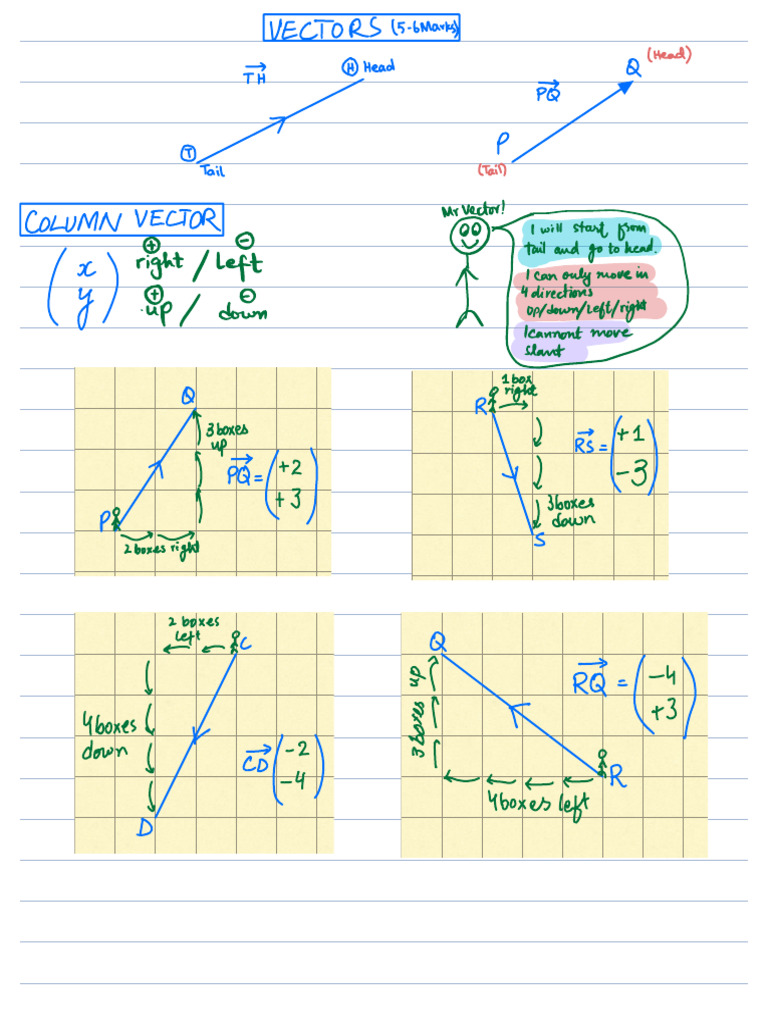 VECTORS (5-6 Marks)
TH
H Head
T
Tail
PQ
Q (Head)
P
(Tail)
COLUMN VECTOR
(x y)
+ -
right / left
+ -
up / down
Mr Vector!
I will start from
tail and go to head.
I can only move in
4 directions
up/down/left/right
I cannont move
slant
Q
3 boxes
up
PQ = (+2 +3)
P
2 boxes right
1 box
right
R
RS = (+1 -3)
3 boxes
down
S
2 boxes
left
C
4 boxes
down
CD (-2 -4)
D
Q
3 boxes up
RQ = (-4 +3)
R
4 boxes left